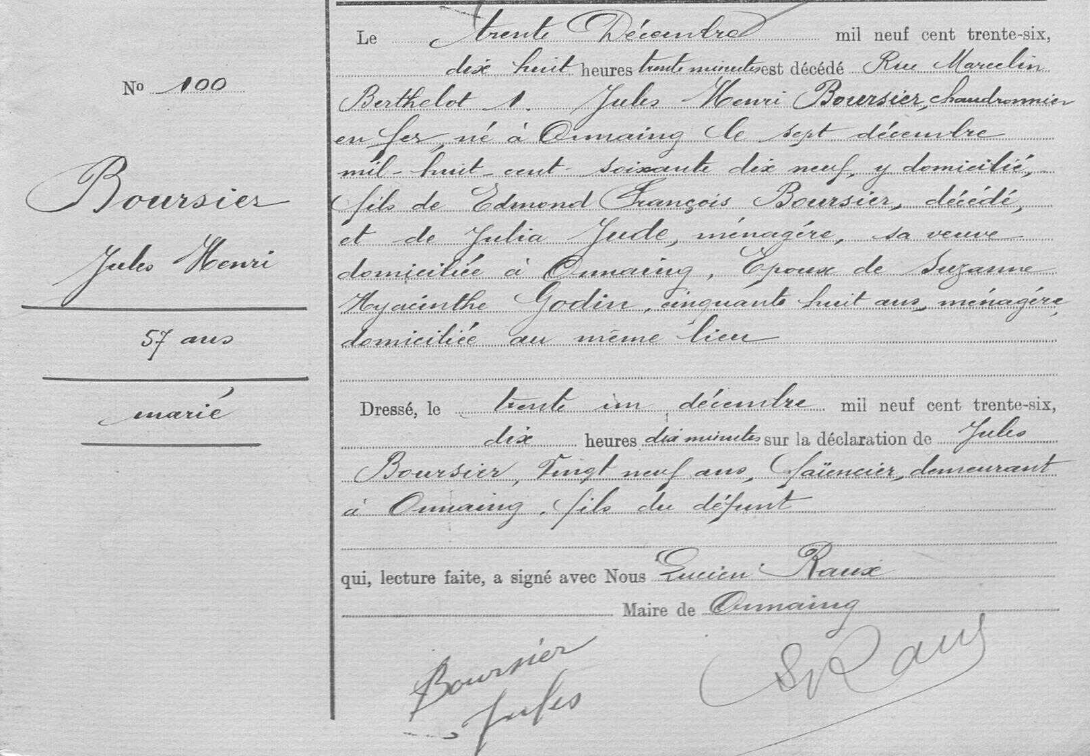 Nº 100
Boursier
Jules Henri
57 ans
marié
Le trente Décembre mil neuf cent trente-six,
dix huit heures trente minutes est décédé Rue Marcelin
Berthelot 1. Jules Henri Boursier, chaudronnier
en fer, né à Onnaing le sept décembre
mil-huit-cent-soixante dix neuf, y domicilié,
fils de Edmond François Boursier, décédé,
et de Julia Jude, ménagère, sa veuve
domiciliée à Onnaing, Epoux de Suzanne
Hyacinthe Godin, cinquante huit ans, ménagère,
domiciliée au même lieu
Dressé, le trente un décembre mil neuf cent trente-six,
dix heures dix minutes sur la déclaration de Jules
Boursier, Vingt neuf ans, faïencier, demeurant
à Onnaing, fils du défunt
qui, lecture faite, a signé avec Nous Lucien Raux
Maire de Onnaing
Boursier
Jules
Raux